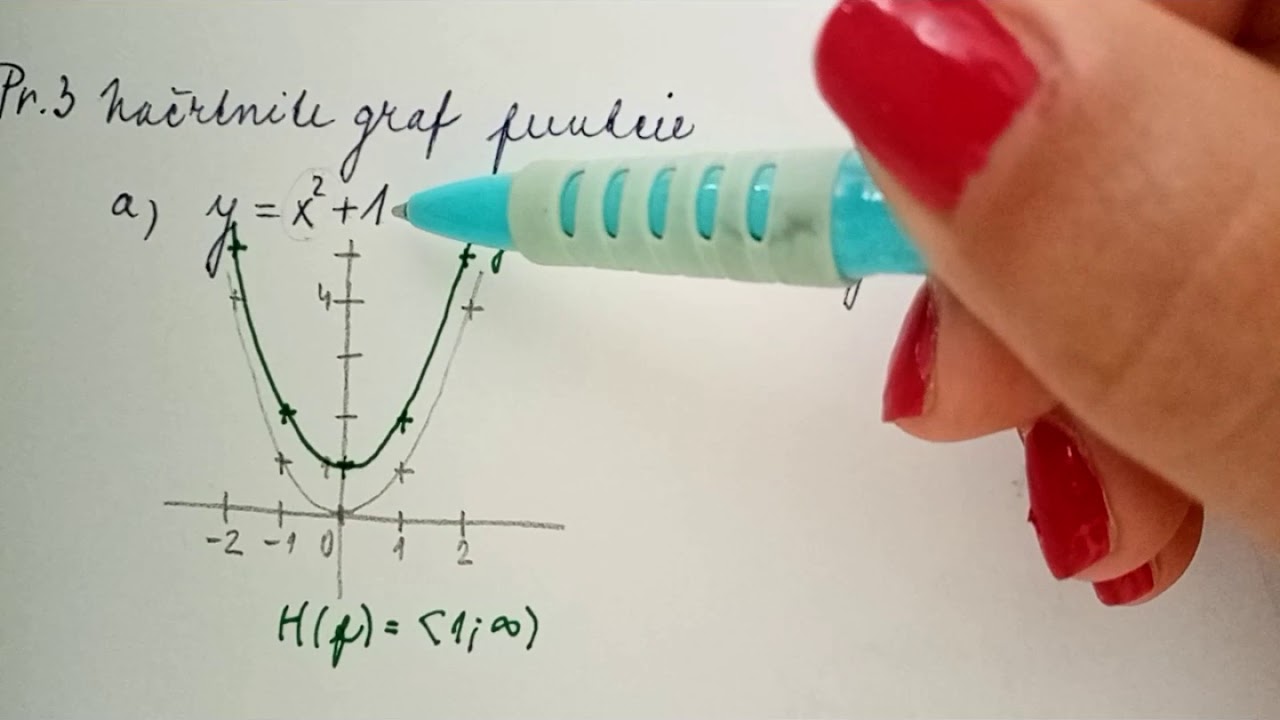 Pr.3 Načrtnite graf funkcie
a) y = x² + 1
4
1
-2 -1 0 1 2
H(f) = <1; ∞)